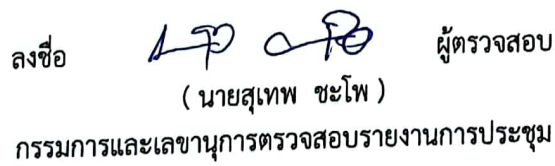 ลงชื่อ ผู้ตรวจสอบ
( นายสุเทพ ชะโพ )
กรรมการและเลขานุการตรวจสอบรายงานการประชุม